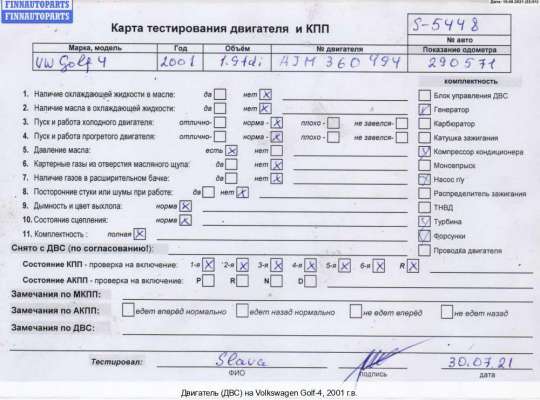 FINNAUTOPARTS
FINNAUTOPARTS
Карта тестирования двигателя и КПП
S-5448
№ авто
Марка, модель Год Объём № двигателя Показание одометра
VW Golf 4 2001 1.9tdi AJM 360494 290571
комплектность
1. Наличие охлаждающей жидкости в масле: да нет X
2. Наличие масла в охлаждающей жидкости: да нет X
3. Пуск и работа холодного двигателя: отлично- норма - X плохо - не завелся-
4. Пуск и работа прогретого двигателя: отлично- норма - X плохо - не завелся-
5. Давление масла: есть X нет
6. Картерные газы из отверстия масляного щупа: да нет X
7. Наличие газов в расширительном бачке: да нет X
8. Посторонние стуки или шумы при работе: да нет X
9. Дымность и цвет выхлопа: норма X
10. Состояние сцепления: норма X
11. Комплектность : полная X
Блок управления ДВС
Генератор
Карбюратор
Катушка зажигания
Компрессор кондиционера
Моновпрыск
Насос г\у
Распределитель зажигания
ТНВД
Турбина
Форсунки
Проводка двигателя
Снято с ДВС (по согласованию!):
Состояние КПП - проверка на включение: 1-я X 2-я X 3-я X 4-я X 5-я X 6-я X R X
Состояние АКПП - проверка на включение: P R N D
Замечания по МКПП:
Замечания по АКПП: едет вперёд нормально едет назад нормально не едет вперёд не едет назад
Замечания по ДВС:
Тестировал: Slava 30.07.21
ФИО подпись дата
Двигатель (ДВС) на Volkswagen Golf-4, 2001 г.в.